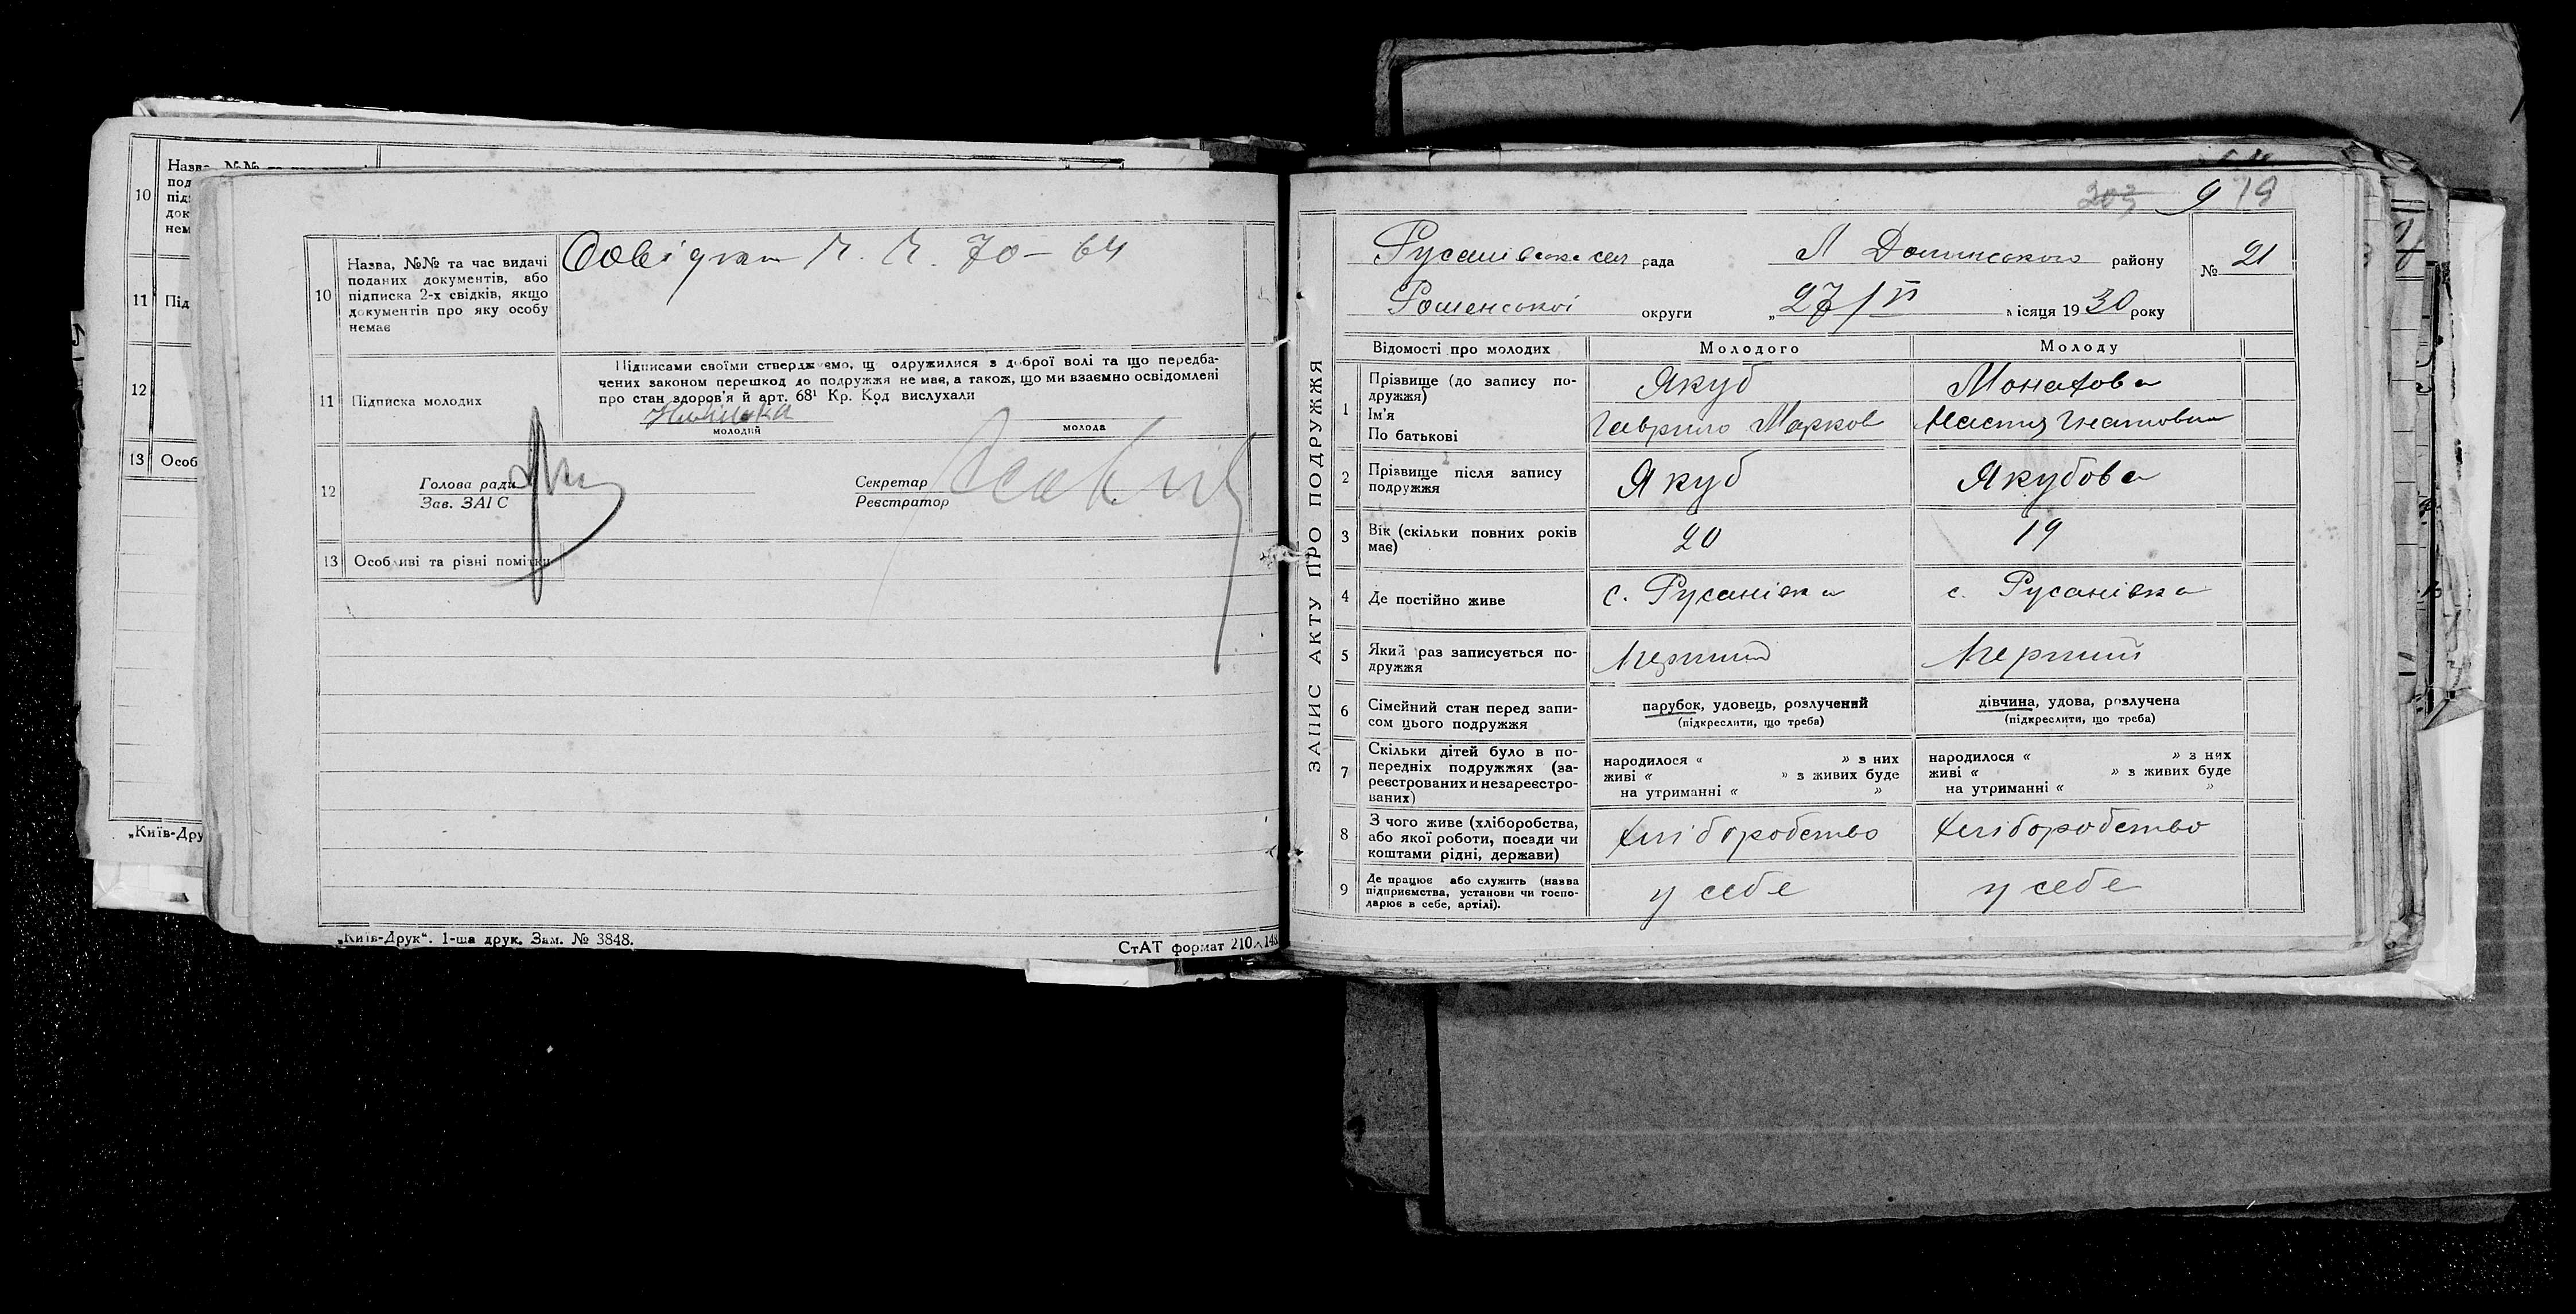 10
Назва, №№
под
підп
док
нем
11 Під
12
13 Особ
„Київ-Дру
10
Назва, №№ та час видачі
поданих документів, або
підписка 2-х свідків, якщо
документів про яку особу
немає
Довідки Ч. Ч. 70 — 64
11 Підписка молодих
Підписами своїми стверджуємо, щ одружилися з доброї волі та що передба-
чених законом перешкод до подружжя не має, а також, що ми взаємно освідомлені
про стан здоров'я й арт. 68¹ Кр. Код вислухали
молодий
молода
12
Голова ради
Зав. ЗАГС
Секретар
Реєстратор
13 Особливі та різні помітки
„Київ-Друк“. 1-ша друк. Зам. № 3848.
СтАТ формат 210×148
203 9 19
Русанівська сіл рада Л Долинського району
№ 21
Роменської округи „27/VI місяця 1930 року
ЗАПИС АКТУ ПРО ПОДРУЖЖЯ
Відомості про молодих Молодого Молоду
1
Прізвище (до запису по-
дружжя) Якуб Монахова
Ім'я
По батькові Гаврило Марков Настя Гнатовна
2
Прізвище після запису
подружжя Якуб Якубова
3
Вік (скільки повних років
має) 20 19
4 Де постійно живе с. Русанівка с. Русанівка
5
Який раз записується по-
дружжя перший перший
6
Сімейний стан перед запи-
сом цього подружжя
парубок, удовець, розлучений
(підкреслити, що треба)
дівчина, удова, розлучена
(підкреслити, що треба)
7
Скільки дітей було в по-
передніх подружжях (за-
реєстрованих и незареєстро-
ваних)
народилося « » з них
живі « » з живих буде
на утриманні « »
народилося « » з них
живі « » з живих буде
на утриманні « »
8
З чого живе (хліборобства,
або якої роботи, посади чи
коштами рідні, держави)
хліборобство хліборобство
9
Де працює або служить (назва
підприємства, установи чи госпо-
дарює в себе, артілі).
у себе у себе